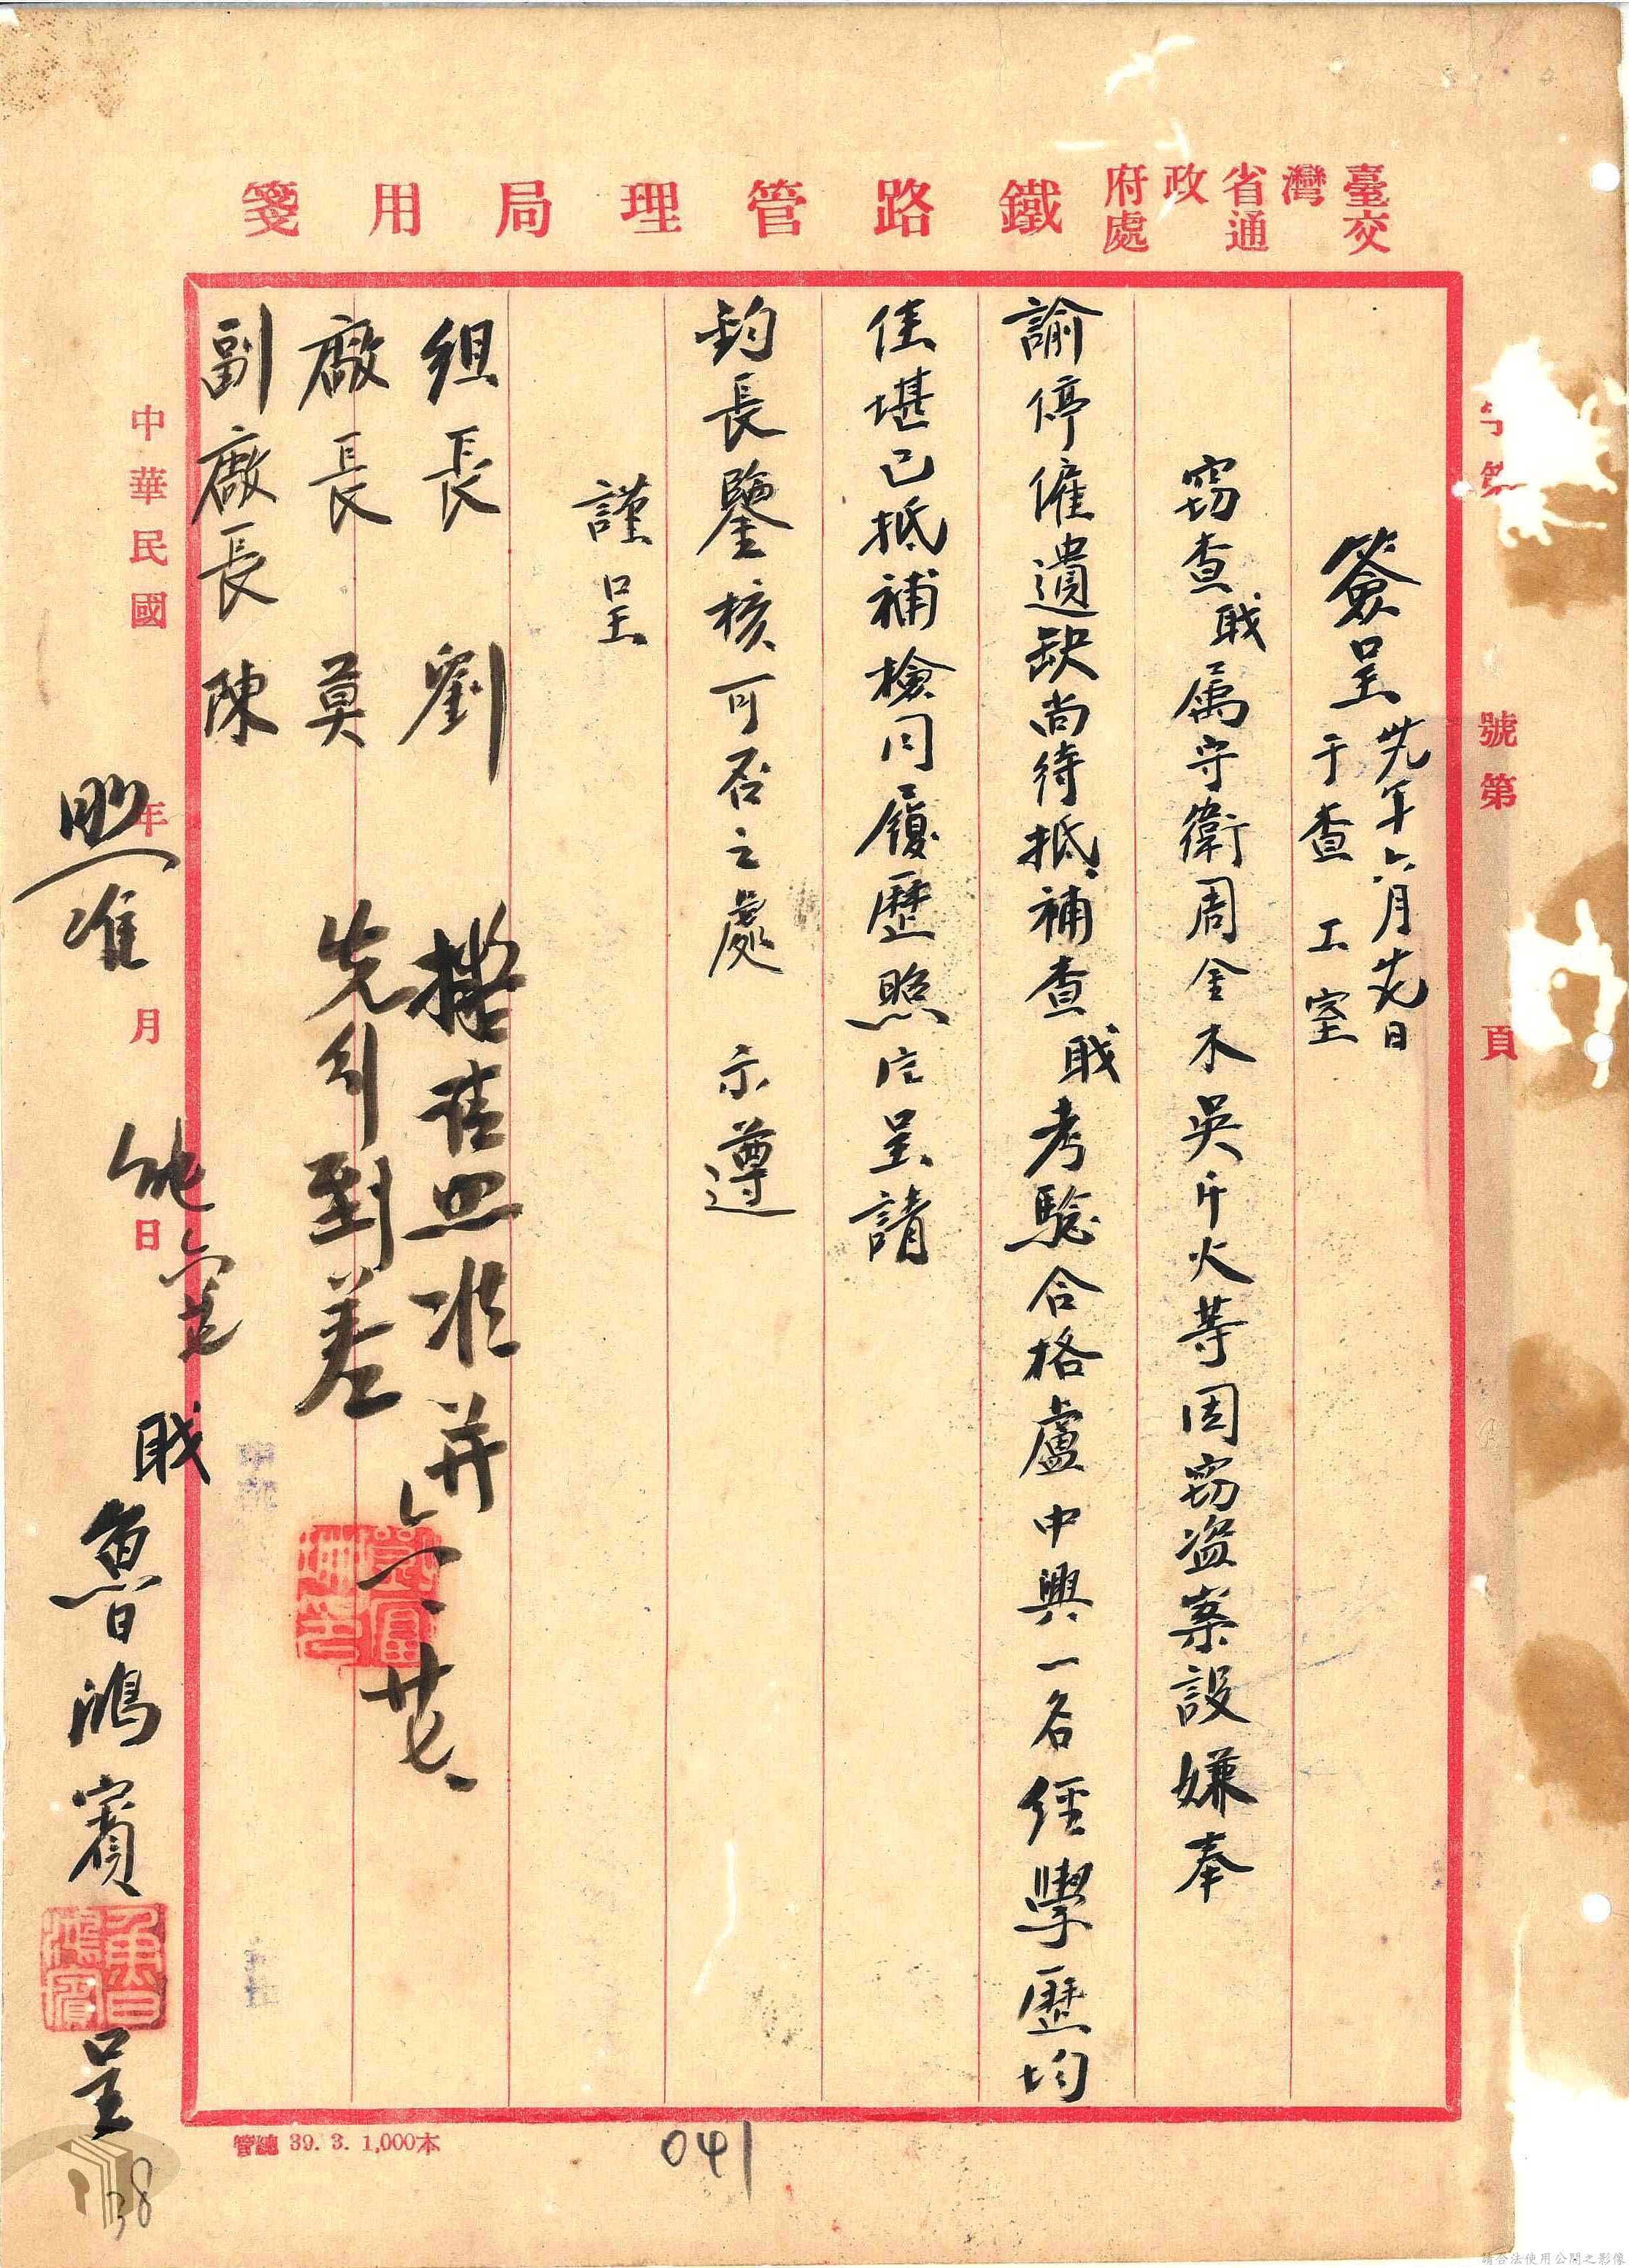 臺灣省政府
交通處
鐵路管理局用箋
字第
號第
頁
簽呈
卅九年六月廿九日
于查工室
窃查職属守衛周金木吳斤火等因窃盜案設嫌奉
諭停僱遺缺尚待抵補查職考驗合格盧中興一名經學歷均
佳堪已抵補檢同履歷照片呈請
鈞長鑒核可否之處 示遵
謹呈
組長 劉
廠長 莫
副廠長 陳
擬請照准并
先行到差
六、廿七、
照准
職 魯鴻賓 呈
魯鴻賓
中華民國 年 月 日
管總 39. 3. 1,000本
041
38
請合法使用公開之影像